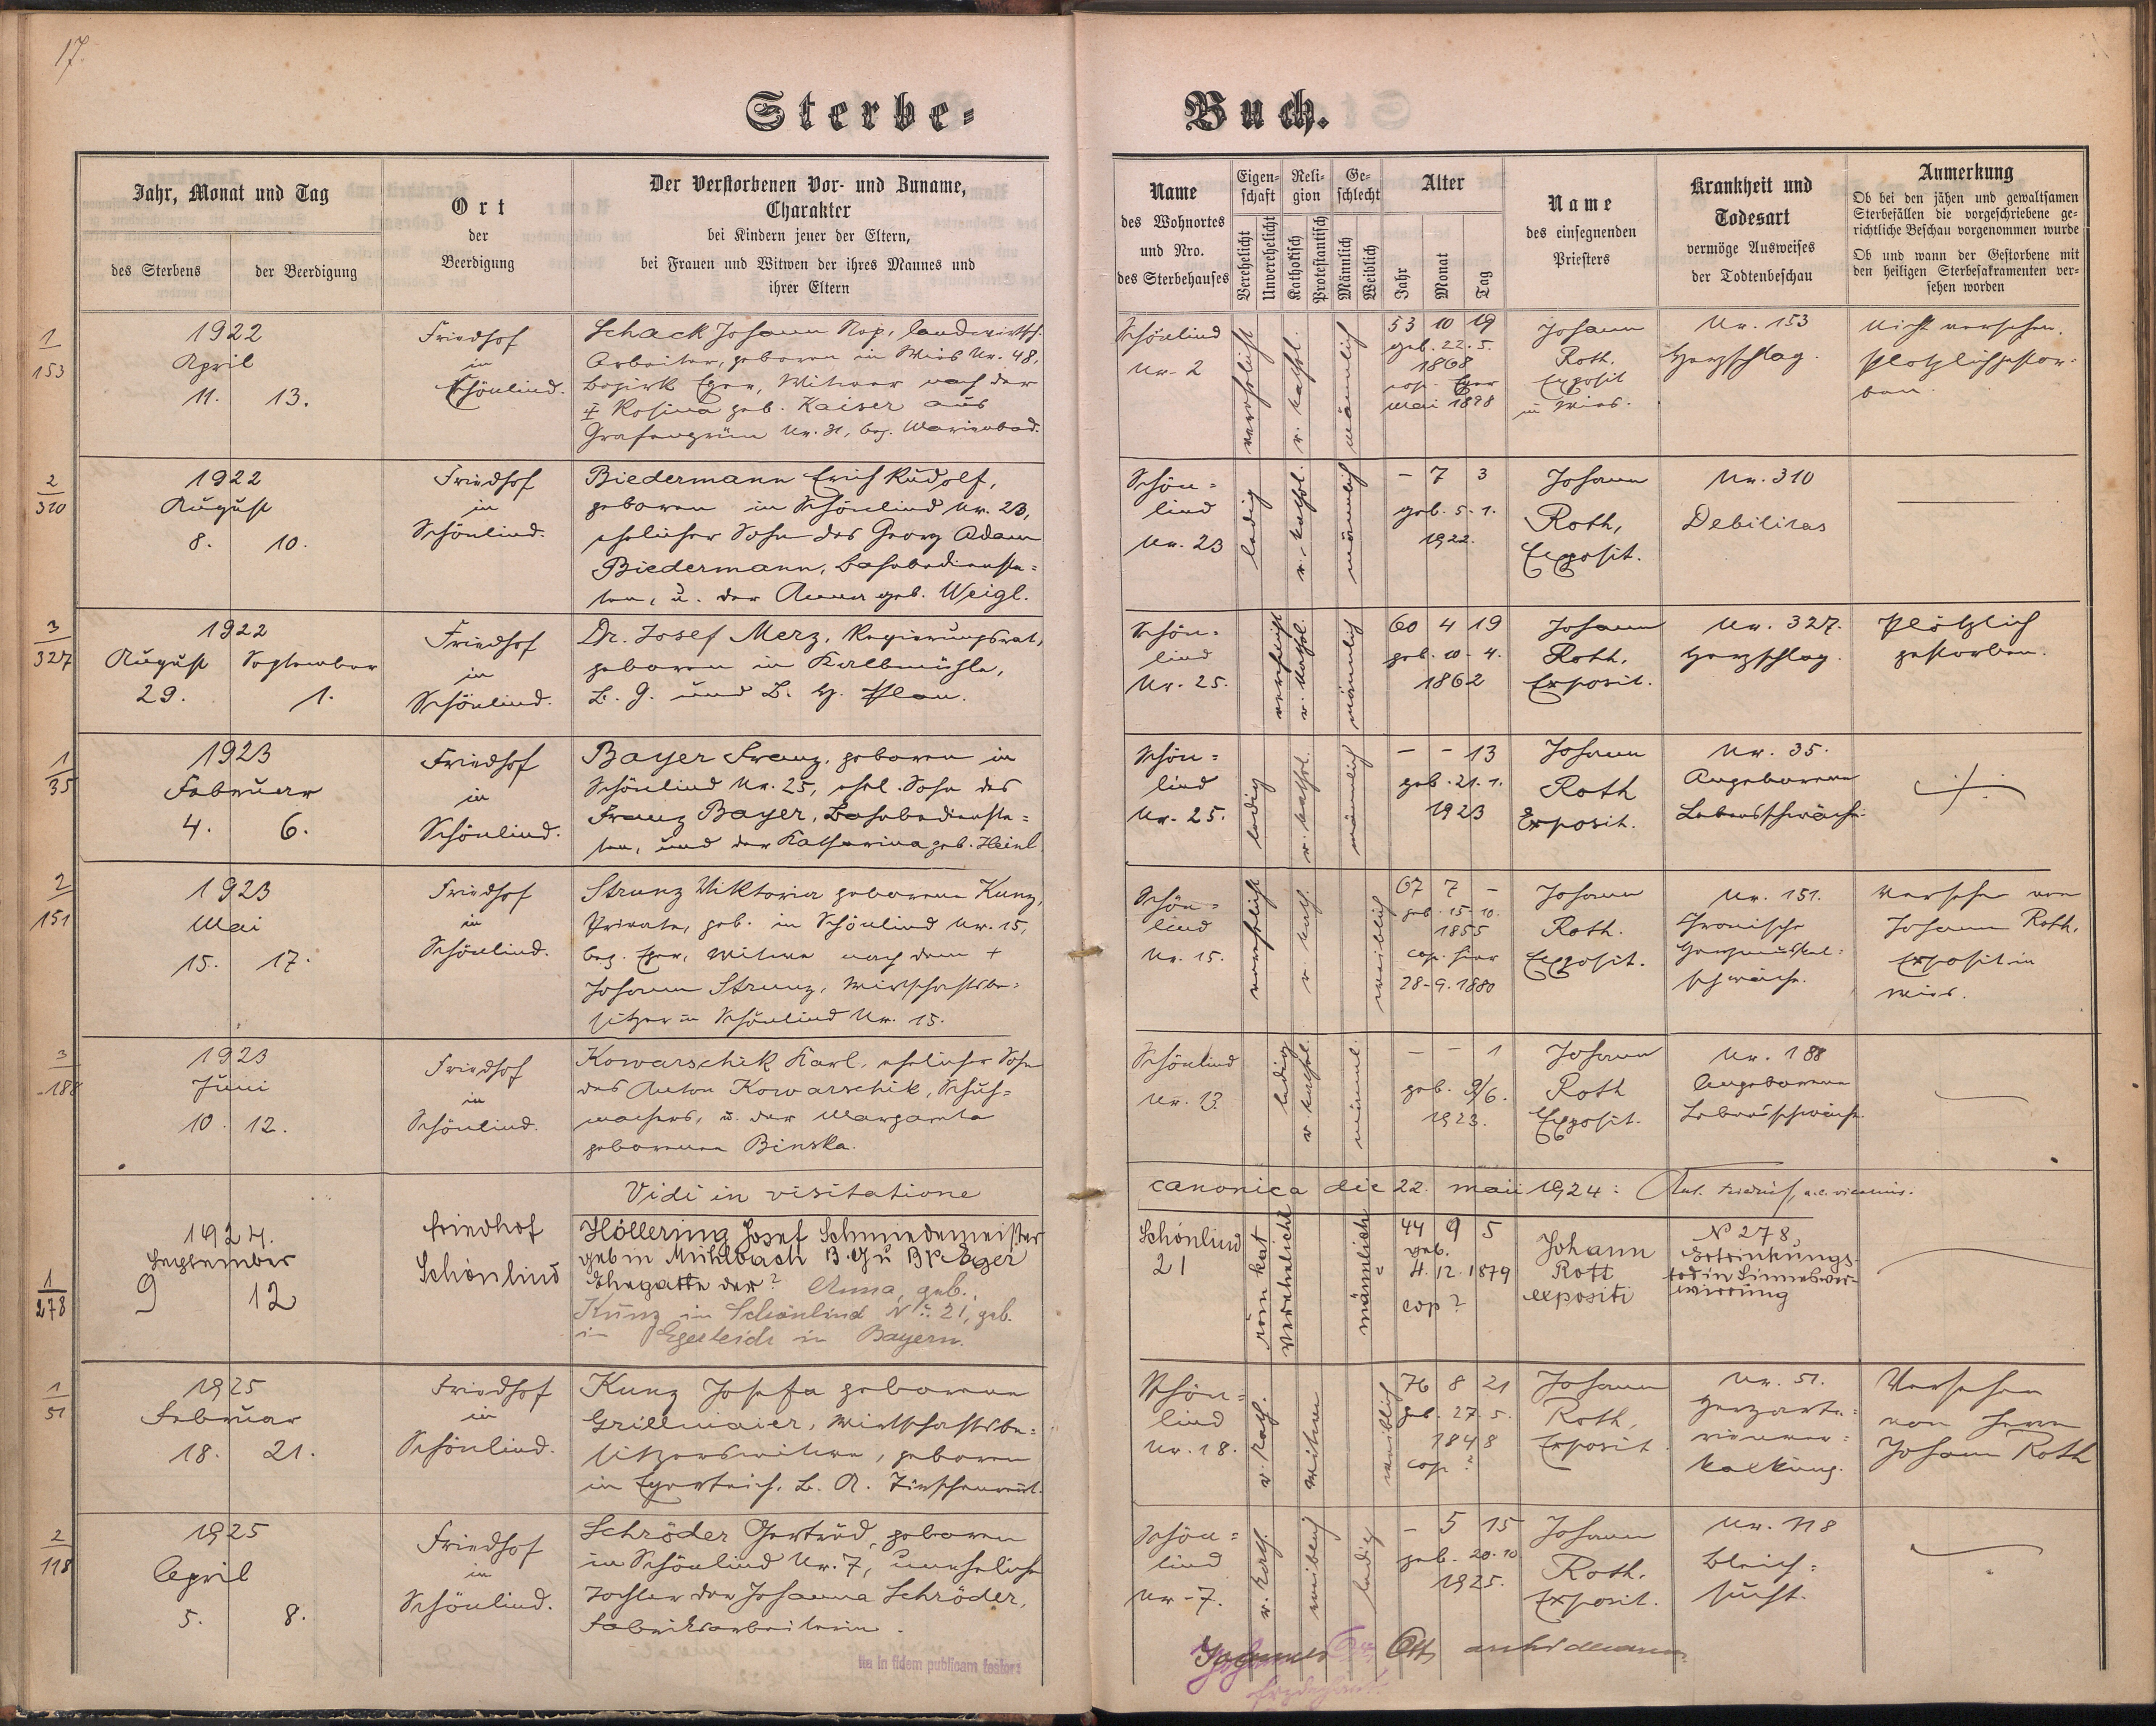 17.
Sterbe-
Buch.
Jahr, Monat und Tag
des Sterbens
der Beerdigung
Ort
der
Beerdigung
Der Verstorbenen Vor- und Zuname,
Charakter
bei Kindern jener der Eltern,
bei Frauen und Witwen der ihres Mannes und
ihrer Eltern
Name
des Wohnortes
und Nro.
des Sterbehauses
Eigen-
schaft
Verehelicht
Unverehelicht
Reli-
gion
Katholisch
Protestantisch
Ge-
schlecht
Männlich
Weiblich
Alter
Jahr
Monat
Tag
Name
des einsegnenden
Priesters
Krankheit und
Todesart
vermöge Ausweises
der Todtenbeschau
Anmerkung
Ob bei den jähen und gewaltsamen
Sterbefällen die vorgeschriebene ge-
richtliche Beschau vorgenommen wurde
Ob und wann der Gestorbene mit
den heiligen Sterbesakramenten ver-
sehen worden
1
153
1922
April
11. 13.
Friedhof
in
Schönlind.
Schack Johann Nep., landwirtsch.
Arbeiter, geboren in Mies Nr. 48,
Bezirk Eger, Witwer nach der
Rosina geb. Kaiser aus
Grafengrün Nr. 31, bez. Marienbad.
Schönlind
Nr. 2
verehelicht
r. kathol.
männlich
53 10 19
geb. 22. 5.
1868
cop. Eger
Mai 1898
Johann
Roth,
Exposit
in Mies.
Nr. 153
Herzschlag.
Nicht versehen.
Plötzlich gestor-
ben.
2
310
1922
August
8. 10.
Friedhof
in
Schönlind.
Biedermann Erich Rudolf,
geboren in Schönlind Nr. 23,
ehelicher Sohn des Georg Adam
Biedermann, Bahnbedienste-
ten, u. der Anna geb. Weigl.
Schön-
lind
Nr. 23
ledig
r. kathol.
männlich
- 7 3
geb. 5. 1.
1922.
Johann
Roth,
Exposit.
Nr. 310
Debilitas
3
327
1922
August September
29. 1.
Friedhof
in
Schönlind.
Dr. Josef Merz, Regierungsrat,
geboren in Kaltbmühle,
B. G. und B. H. Plan.
Schön-
lind
Nr. 25.
verehelicht
r. kathol.
männlich
60 4 19
geb. 10. 4.
1862
Johann
Roth,
Exposit.
Nr. 327.
Herzschlag.
Plötzlich
gestorben.
1
35
1923
Februar
4. 6.
Friedhof
in
Schönlind.
Bayer Franz, geboren in
Schönlind Nr. 25, ehel. Sohn des
Franz Bayer, Bahnbedienste-
ten, und der Katharina geb. Heinl.
Schön-
lind
Nr. 25.
ledig
r. kathol.
männlich
- - 13
geb. 21. 1.
1923
Johann
Roth
Exposit.
Nr. 35.
Angeborene
Lebensschwäche.
2
151
1923
Mai
15. 17.
Friedhof
in
Schönlind.
Strunz Viktoria geborene Kunz,
Private, geb. in Schönlind Nr. 15,
bez. Eger, Witwe nach dem +
Johann Strunz, Wirtschaftsbe-
sitzer in Schönlind Nr. 15.
Schön-
lind
Nr. 15.
verehelicht
r. kath.
weiblich
67 7 -
geb. 15. 10.
1855
cop. hier
28. 9. 1880
Johann
Roth.
Exposit.
Nr. 151.
Chronische
Herzmuskel-
schwäche.
Versehen von
Johann Roth,
Exposit in
Mies.
3
188
1923
Juni
10. 12.
Friedhof
in
Schönlind.
Kowarschik Karl, ehelicher Sohn
des Anton Kowarschik, Schuh-
machers, u. der Margareta
geborenen Binska.
Schönlind
Nr. 13.
ledig
r. kathol.
männl.
- - 1
geb. 9/6.
1923.
Johann
Roth
Exposit.
Nr. 188
Angeborene
Lebensschwäche
Vidi in visitatione canonica die 22. maii 1924:
1
278
1924.
September
9 12
Friedhof
Schönlind
Höllering Josef Schmiedemeister
geb in Mühlbach B. G u B H Eger
Ehegatte der? Anna, geb.
Kunz in Schönlind No. 21, geb.
in Egerteich in Bayern.
Schönlind
21
röm kat
verehelicht
männlich
44 9 5
geb.
4. 12. 1879
cop?
Johann
Rott
expositi
No 278,
Ertrinkungs-
tod in Sinnesver-
wirrung
1
51
1925
Februar
18. 21.
Friedhof
in
Schönlind.
Kunz Josefa geborene
Grillmaier, Wirtschaftsbe-
sitzerswitwe, geboren
in Egerteich, B. A. Tirschenreut.
Schön-
lind
Nr. 18.
r. kath.
Witwe
weiblich
76 8 21
geb. 27. 5.
1848
cop. ?
Johann
Roth,
Exposit.
Nr. 51.
Herzarte-
rienver-
kalkung.
Versehen
von Herrn
Johann Roth
2
118
1925
April
5. 8.
Friedhof
in
Schönlind.
Schröder Gertrud, geboren
in Schönlind Nr. 7, uneheliche
Tochter der Johanna Schröder,
Fabriksarbeiterin.
Schön-
lind
Nr. 7.
r. kath.
weiblich
ledig
- 5 15
geb. 20. 10.
1925.
Johann
Roth.
Exposit.
Nr. 118
Bleich-
sucht.
Ita in fidem publicam testor:
Johannes Ott